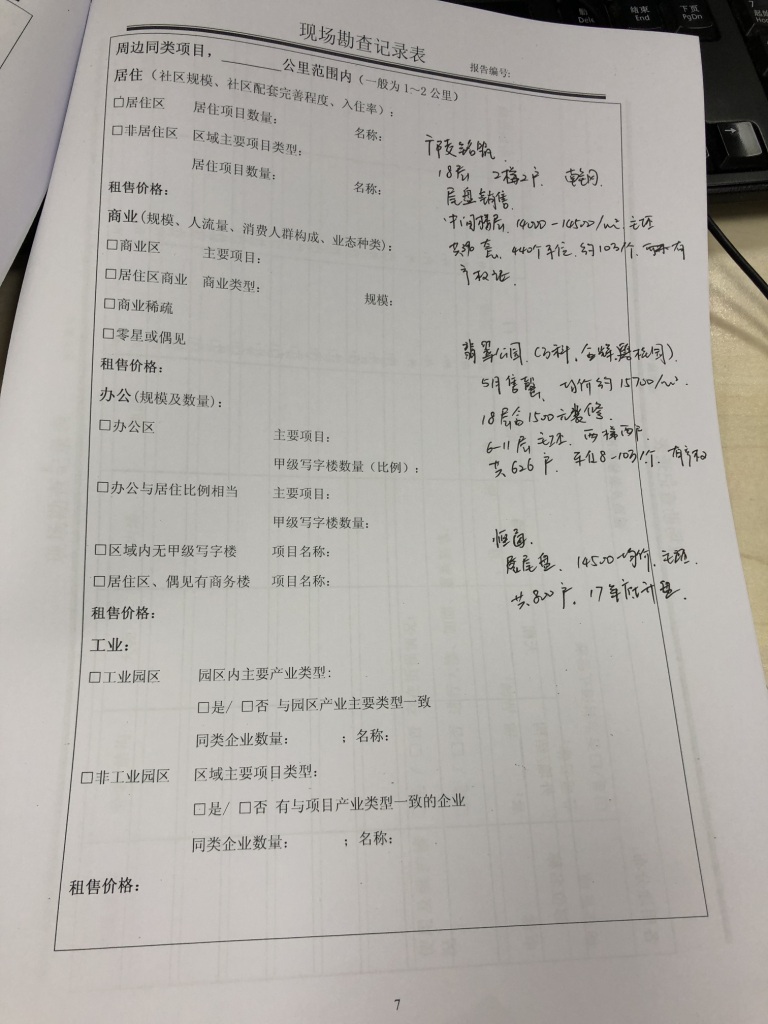 现场勘查记录表
报告编号:
周边同类项目，________公里范围内（一般为1~2公里）
居住（社区规模、社区配套完善程度、入住率）:
□居住区 居住项目数量: 名称:
□非居住区 区域主要项目类型:
居住项目数量: 名称:
租售价格:
商业(规模、人流量、消费人群构成、业态种类):
□商业区 主要项目:
□居住区商业 商业类型: 规模:
□商业稀疏
□零星或偶见
租售价格:
办公(规模及数量):
□办公区 主要项目:
甲级写字楼数量(比例):
□办公与居住比例相当 主要项目:
甲级写字楼数量:
□区域内无甲级写字楼 项目名称:
□居住区、偶见有商务楼 项目名称:
租售价格:
工业:
□工业园区 园区内主要产业类型:
□是/ □否 与园区产业主要类型一致
同类企业数量: ；名称:
□非工业园区 区域主要项目类型:
□是/ □否 有与项目产业类型一致的企业
同类企业数量: ；名称:
租售价格:
18层 2梯2户
尾盘销售
中间楼层, 14000-14500/m². 毛坯
440个车位, 约10万/个,
产权证.
翡翠公园.(万科,
5月售罄, 均价约15700/m².
18层含1500元装修
6-11层毛坯. 两梯两户.
共626户. 车位8-10万/个, 有产权
尾盘, 14500均价, 毛坯.
共800户, 17年
7
End
PgDn